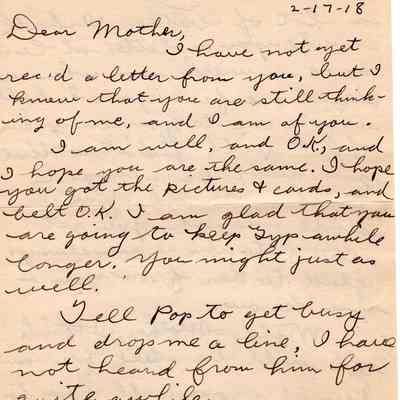 2-17-18
Dear Mother,
I have not yet
rec'd a letter from you, but I
know that you are still think-
ing of me, and I am of you.
I am well, and O.K., and
I hope you are the same. I hope
you got the pictures & cards, and
belt O.K. I am glad that you
are going to keep Gyp awhile
longer. You might just as
well.
Tell Pop to get busy
and drop me a line, I have
not heard from him for
quite awhile.